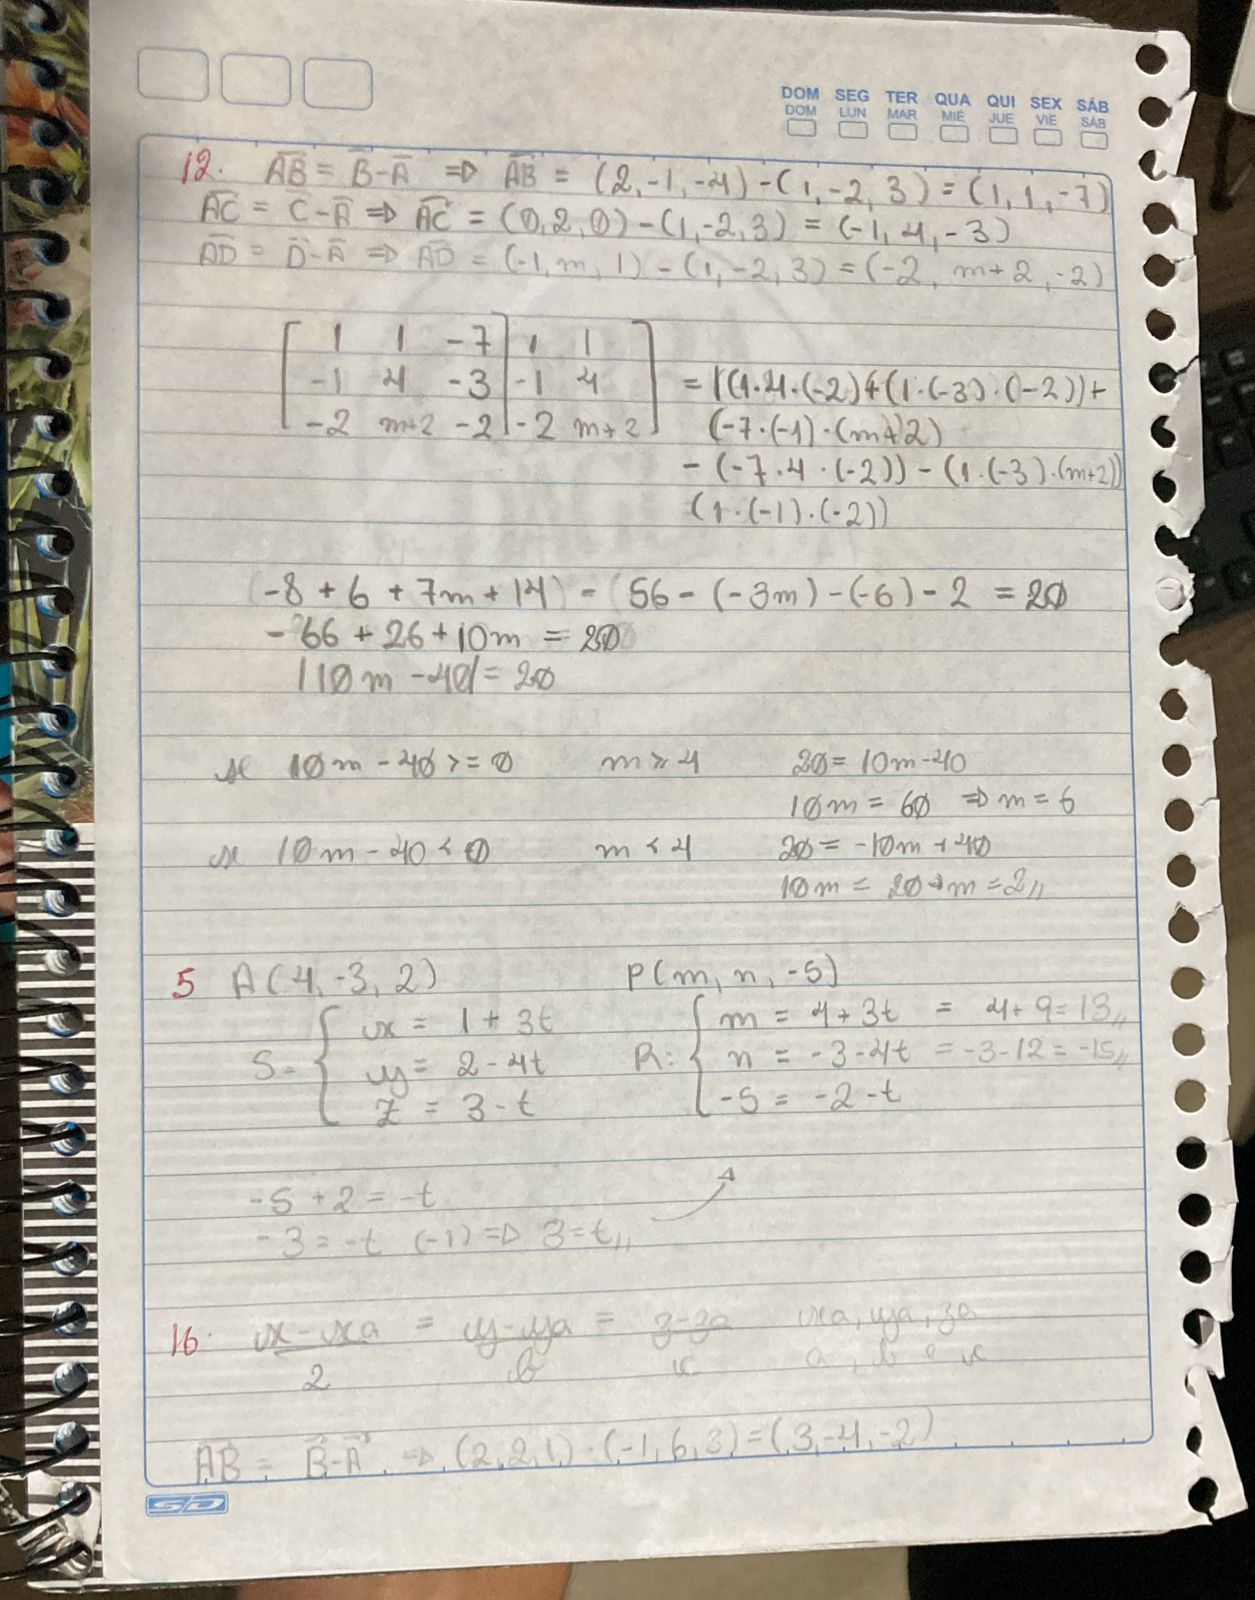 DOM SEG TER QUA QUI SEX SÁB
DOM LUN MAR MIÉ JUE VIE SÁB
12. AB = B-A => AB = (2,-1,-4)-(1,-2,3) = (1,1,-7)
AC = C-A => AC = (0,2,0)-(1,-2,3) = (-1,4,-3)
AD = D-A => AD = (-1,m,1)-(1,-2,3) = (-2, m+2, -2)
1 1 -7 | 1 1
-1 4 -3 | -1 4 = |(1·4·(-2)+(1·(-3)·(-2))+
-2 m+2 -2 | -2 m+2 (-7·(-1)·(m+2)
- (-7·4·(-2)) - (1·(-3)·(m+2))
(1·(-1)·(-2))
(-8 + 6 + 7m + 14) - (56 - (-3m) - (-6) - 2 = 20
- 66 + 26 + 10m = 20
|10m - 40| = 20
se 10m - 40 >= 0 m ≥ 4 20 = 10m-40
10m = 60 => m = 6
se 10m - 40 < 0 m < 4 20 = -10m + 40
10m = 20 → m = 2//
5 A(4,-3,2) P(m, n, -5)
S= { x = 1 + 3t R: { m = 4+3t = 4+9=13//
y = 2-4t n = -3-4t = -3-12 = -15//
z = 3-t -5 = -2-t
-5 + 2 = -t
-3 = -t (-1) => 3 = t//
16. x-xa = y-ya = z-za xa, ya, za
2 b c a, b e c
AB = B-A => (2,2,1)-(-1,6,3)=(3,-4,-2)
SD